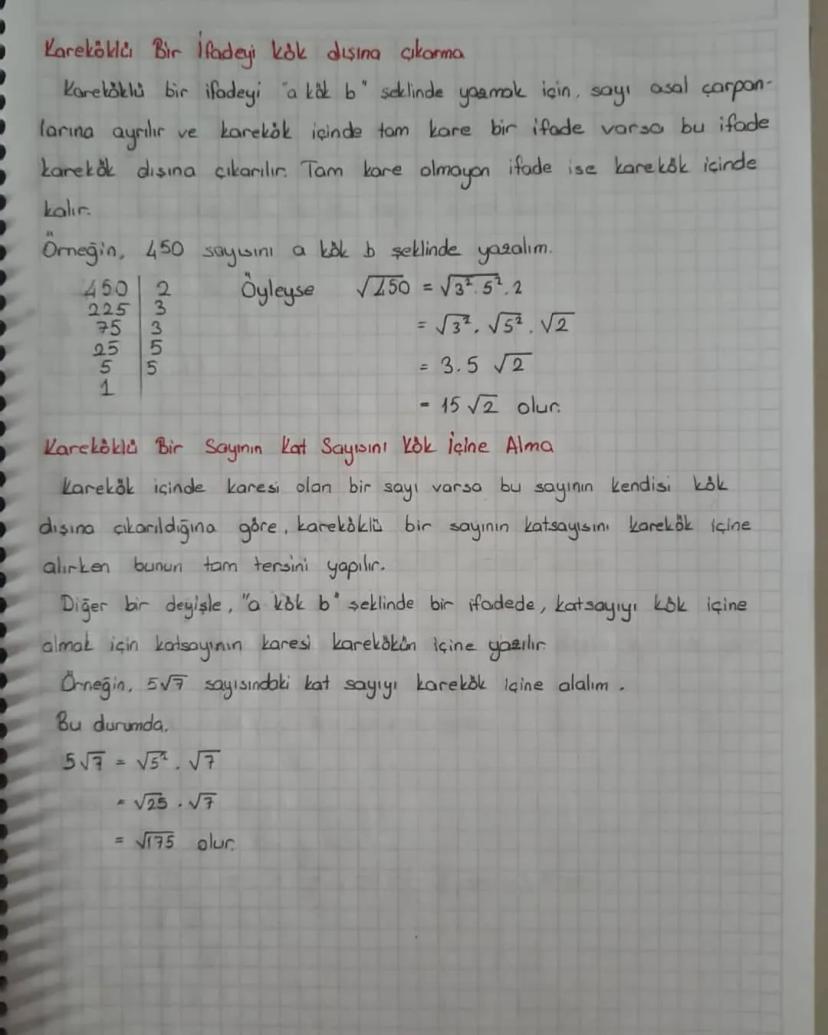 Kareköklü Bir İfadeyi kök dışına çıkarma
Kareköklü bir ifadeyi "a kök b" şeklinde yazmak için, sayı asal çarpan-
larına ayrılır ve karekök içinde tam kare bir ifade varsa bu ifade
karekök dışına çıkarılır. Tam kare olmayan ifade ise karekök içinde
kalır.
Örneğin, 450 sayısını a kök b şeklinde yazalım.
450 | 2 Öyleyse √450 = √3².5².2
225 | 3
75 | 3 = √3² . √5² . √2
25 | 5
5 | 5 = 3.5 √2
1
= 15 √2 olur.
Kareköklü Bir Sayının Kat Sayısını Kök İçine Alma
Karekök içinde karesi olan bir sayı varsa bu sayının kendisi kök
dışına çıkarıldığına göre, kareköklü bir sayının katsayısını karekök içine
alırken bunun tam tersini yapılır.
Diğer bir deyişle, "a kök b" şeklinde bir ifadede, katsayıyı kök içine
almak için katsayının karesi karekökün içine yazılır.
Örneğin, 5√7 sayısındaki kat sayıyı karekök içine alalım.
Bu durumda,
5√7 = √5² . √7
= √25 . √7
= √175 olur.